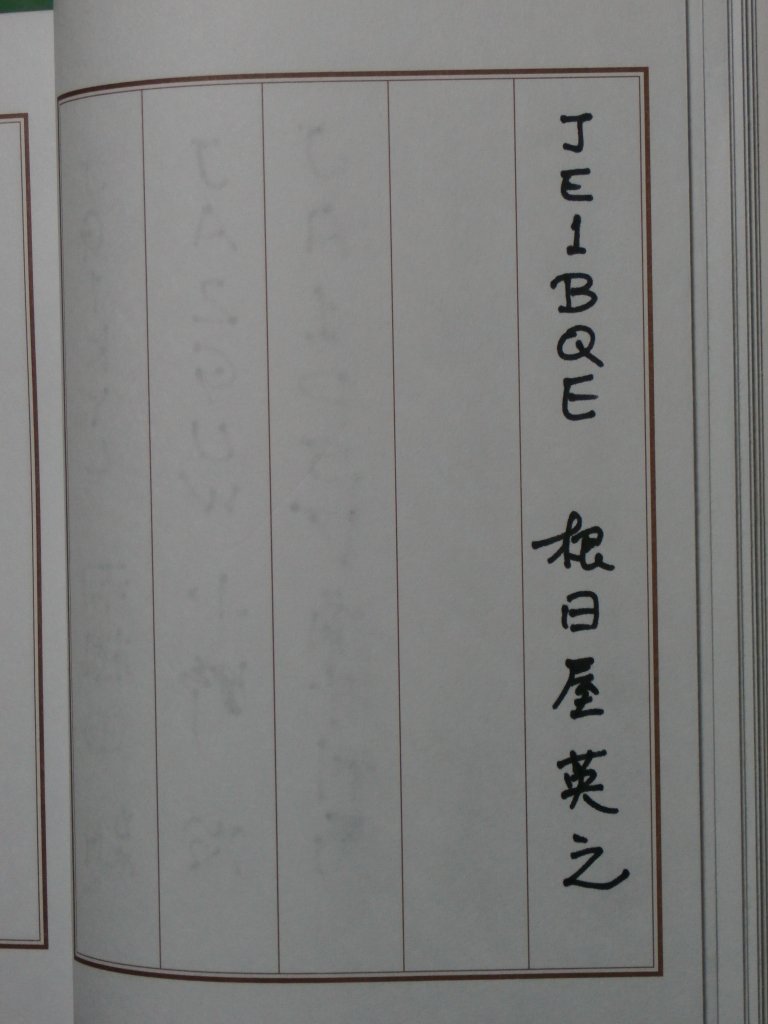 JE1BQE 根日屋英之